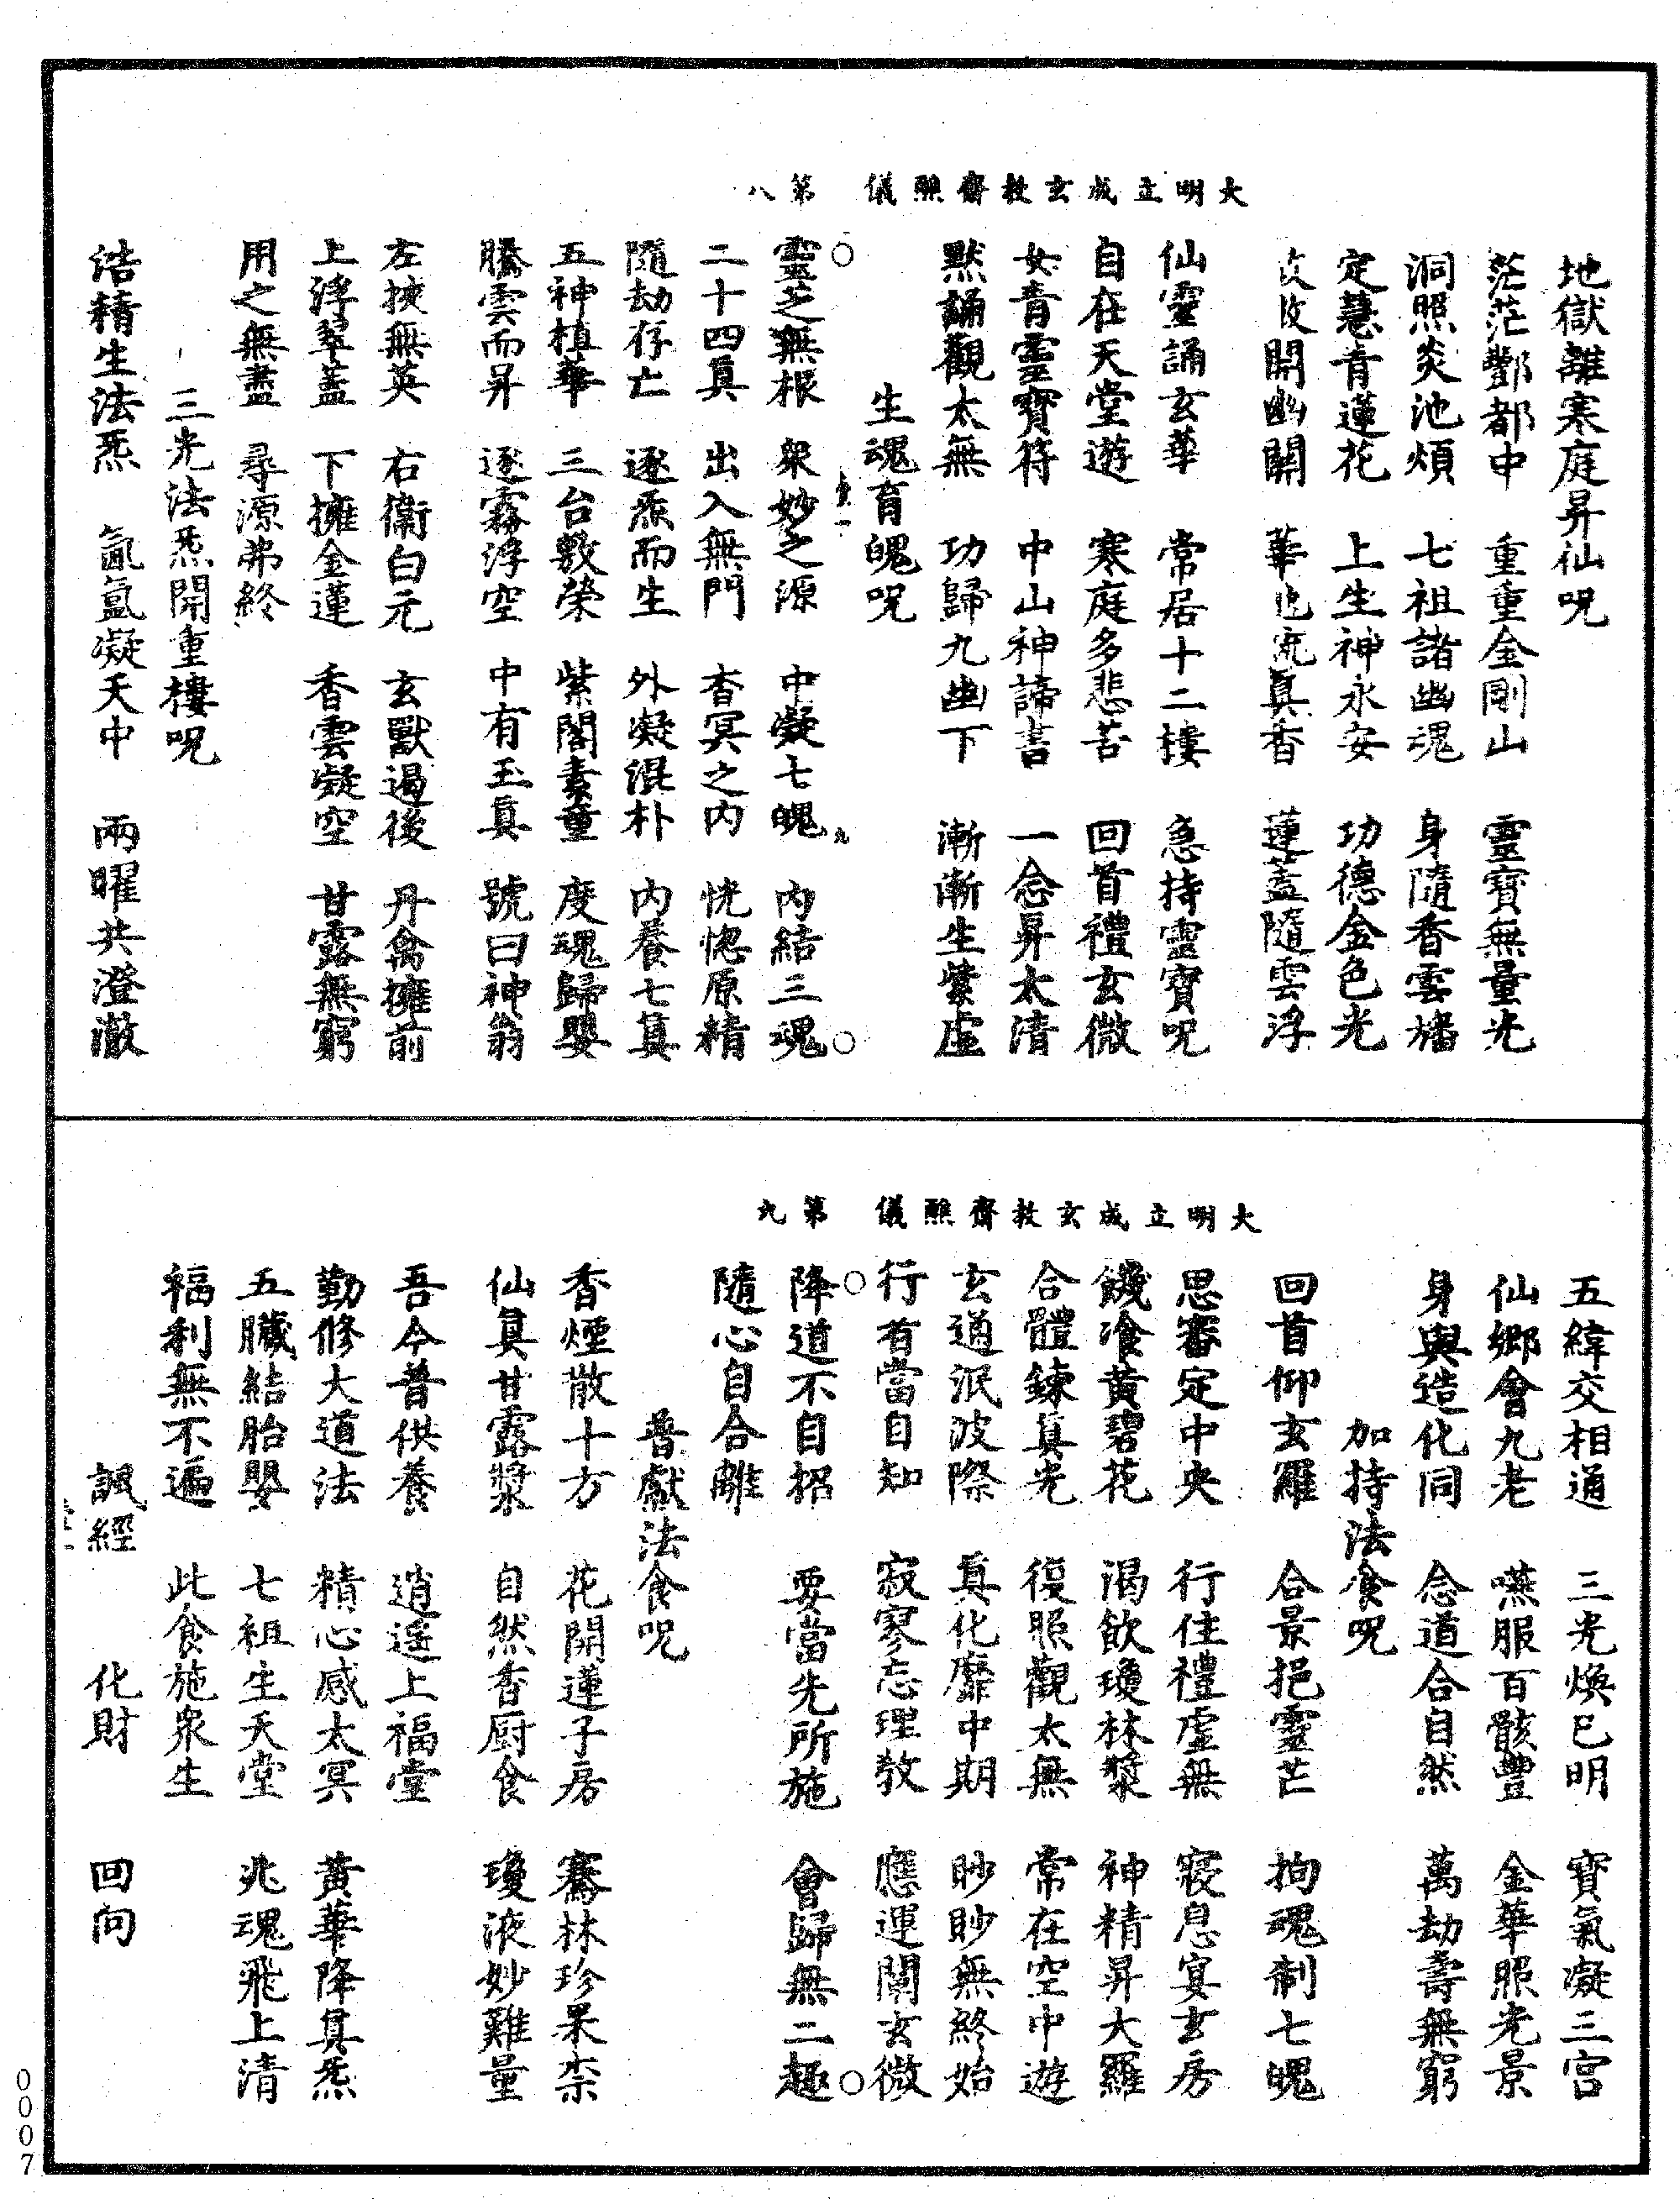 大明立成玄教齋醮儀　第八
地獄離寒庭昇仙呪
茫茫酆都中　重重金剛山　靈寶無量光
洞照炎池煩　七祖諸幽魂　身隨香雲旛
定慧青蓮花　上生神永安　功德金色光
開幽關　華池流真香　蓮蓋隨雲浮
仙靈誦玄華　常居十二樓　急持靈寶呪
自在天堂遊　寒庭多悲苦　回首禮玄微
女青靈寶符　中山神諦書　一念昇太清
默誦觀太無　功歸九幽下　漸漸生紫虛
生魂育魄呪
靈芝無根　衆妙之源　中凝七魄　內結三魂
二十四眞　出入無門　杳冥之內　恍惚原精
隨劫存亡　逐炁而生　外凝混朴　內養七眞
五神植華　三台敷榮　紫閣素童　度魂歸嬰
騰雲而昇　逐霧浮空　中有玉眞　號曰神翁
左挾無英　右衞白元　玄獸遏後　丹禽擁前
上浮翠蓋　下擁金蓮　香雲凝空　甘露無窮
用之無盡　尋源弗終
三光法炁開重樓呪
浩精生法炁　氤氳凝天中　兩曜共澄澈
大明立成玄教齋醮儀　第九
五緯交相通　三光煥已明　寶氣凝三宮
仙鄉會九老　嚥服百骸豐　金華照光景
身與造化同　念道合自然　萬劫壽無窮
加持法食呪
回首仰玄羅　合景挹靈芒　拘魂制七魄
思審定中央　行住禮虛無　寢息宴玄房
饑飡黃碧花　渴飲瓊林漿　神精昇大羅
合體鍊眞光　復照觀太無　常在空中遊
玄通泯波際　眞化靡中期　眇眇無終始
行者當自知　寂寥忘理教　應運闡玄微
降道不自招　要當先所施　會歸無二趣
隨心自合離
普獻法食呪
香煙散十方　花開蓮子房　騫林珍果柰
仙眞甘露漿　自然香厨食　瓊液妙難量
吾今普供養　逍遥上福堂
勤修大道法　精心感太冥　黃華降眞炁
五臟結胎嬰　七祖生天堂　兆魂飛上清
福利無不遍　此食施衆生
諷經　化財　回向
0007